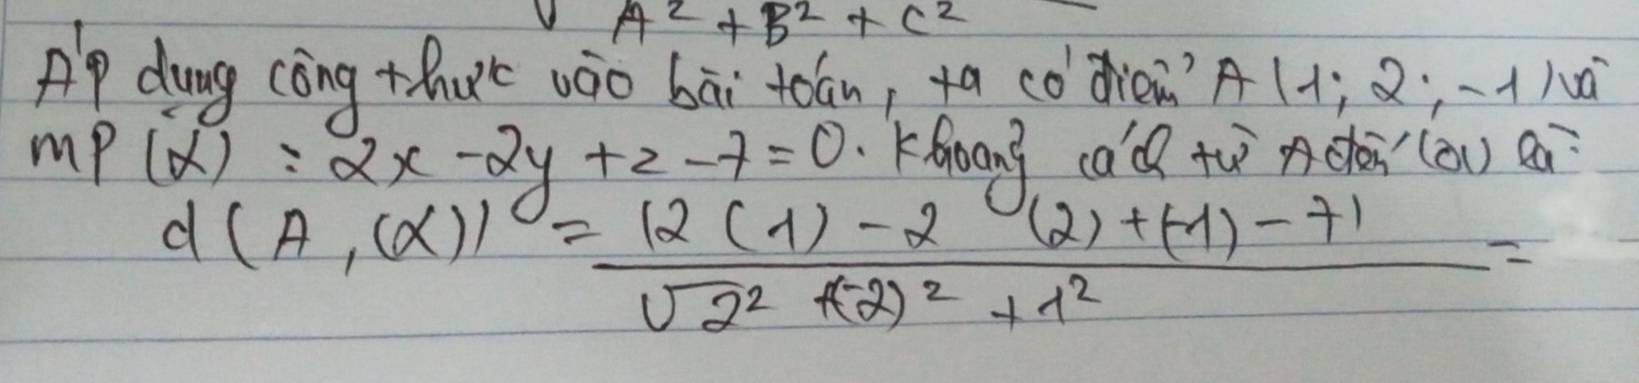 √A² + B² + C²
Áp dụng công thức vào bài toán, ta có điểm A (1; 2; -1) và
mp (α) : 2x - 2y + z - 7 = 0. Khoảng cách từ A đến (α) là:
d(A, (α)) = |2(1) - 2(2) + (-1) - 7| =
√2² + (-2)² + 1²